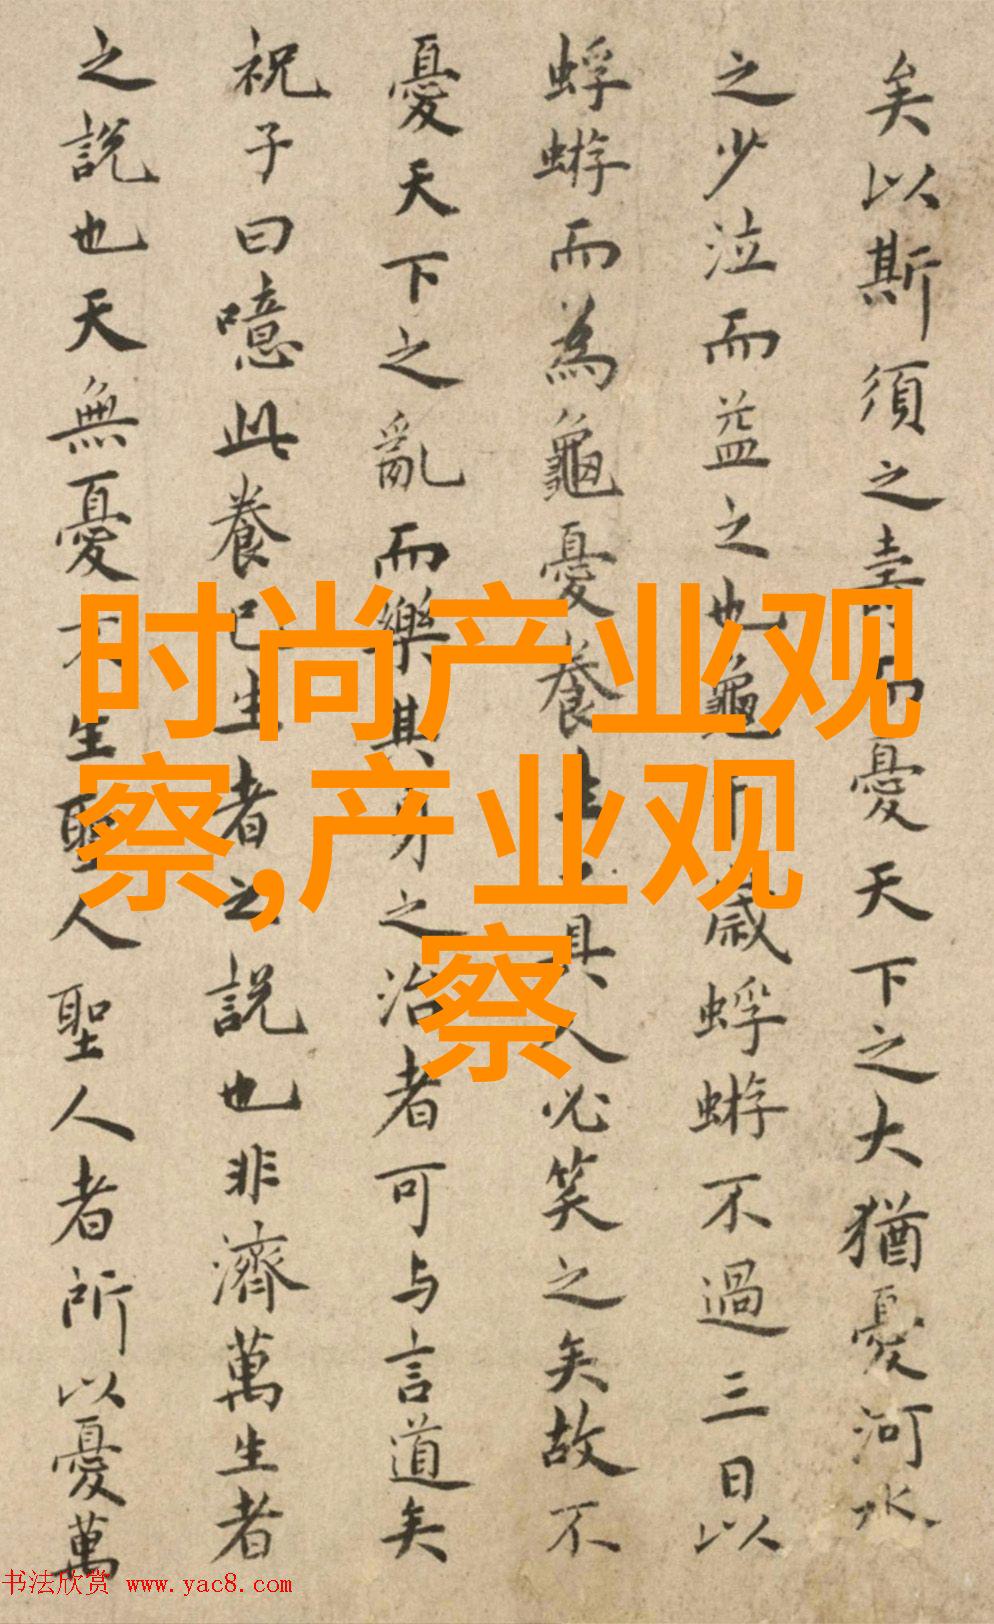 矣以斯須之 而憂天下之大猶憂河水
之少泣而益之也龜千歲蜉蝣不過三日以
蜉蝣而為龜憂養生之具人必笑之矣故不
憂天下之亂而樂其身之治者可与言道矣
祝子曰噫此養 生者之說也非濟萬生者
之說也天無憂不生聖人聖人者所以憂萬
时尚产业观
察,产业观
察
书法欣赏 www.yac8.com